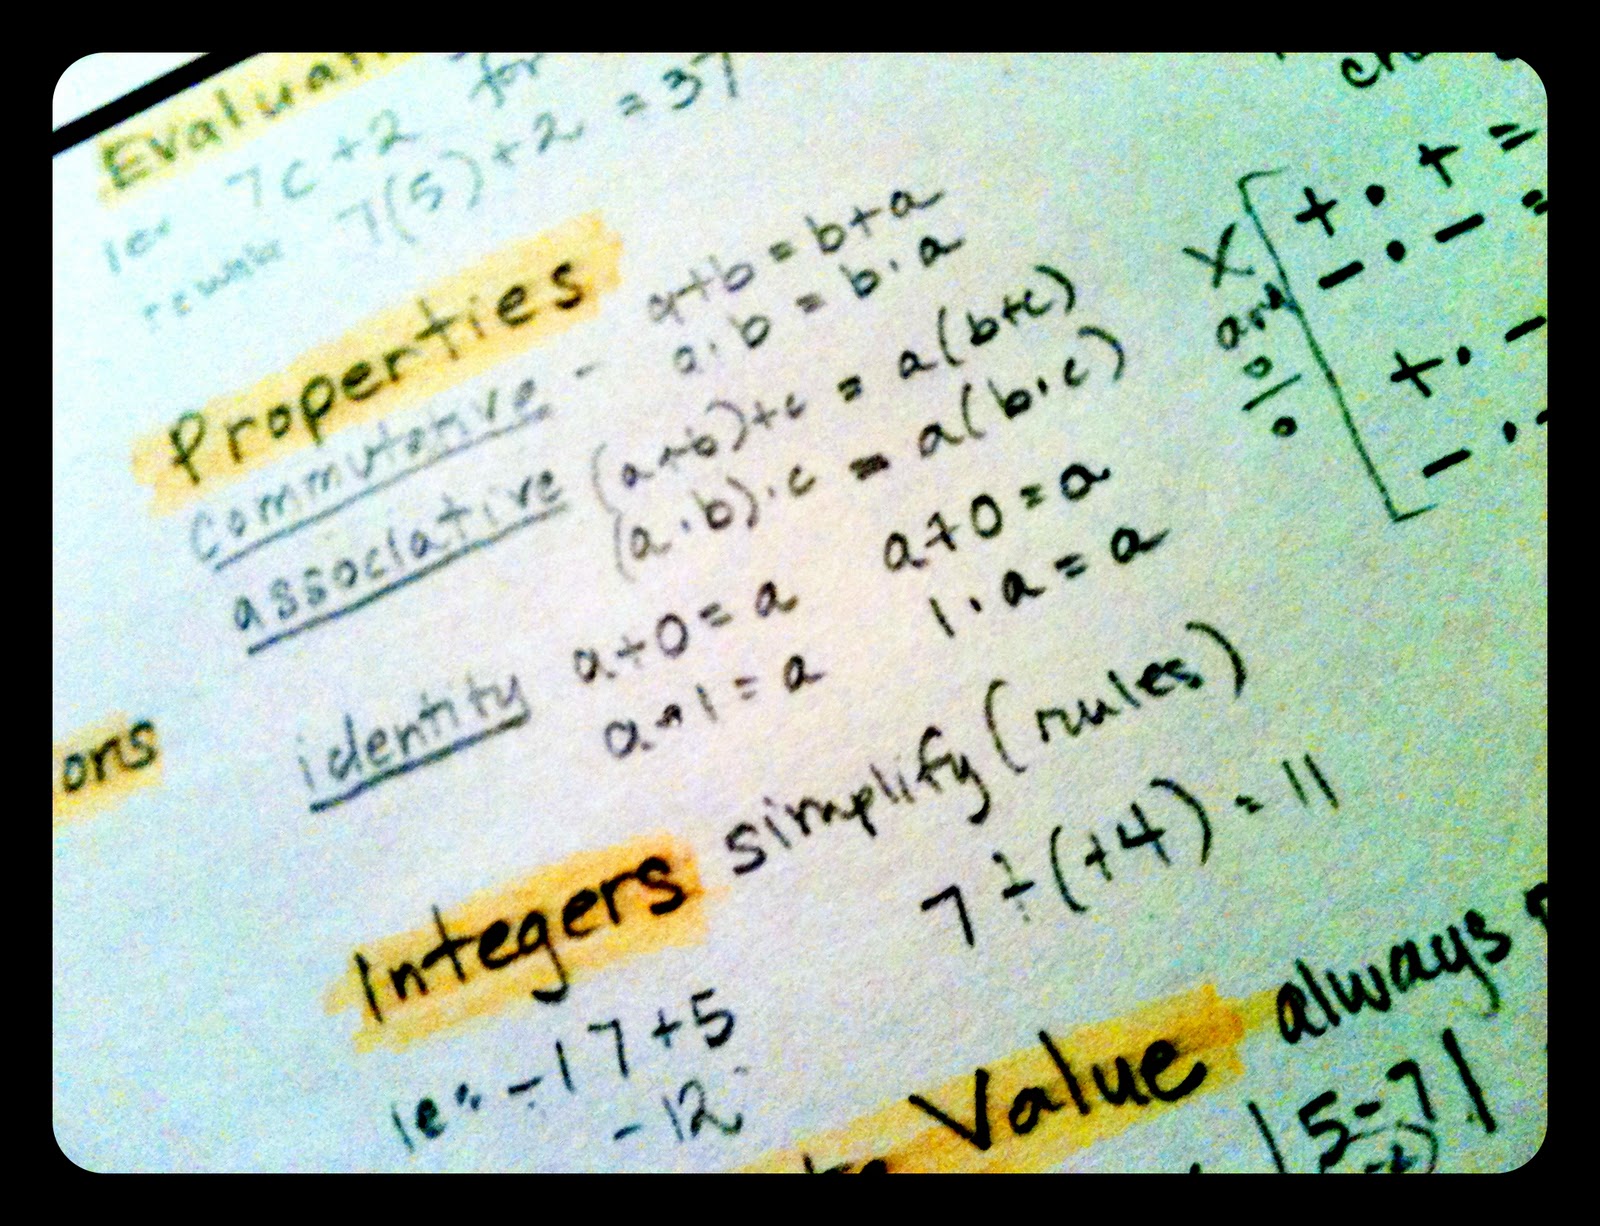 Evaluat
ie: 7c + 2 for
rewrite 7(5) + 2 = 37
Properties
commutative - a+b = b+a
a·b = b·a
associative (a+b)+c = a(b+c)
(a·b)·c = a(b·c)
identity a+0=a a+0=a
a·1=a 1·a=a
ons
Integers simplify (rules)
ie: -17+5 7÷(+4) = 11
-12
Value always
|5-7|
X
and
+ · + =
- · - =
+ · -
- ·